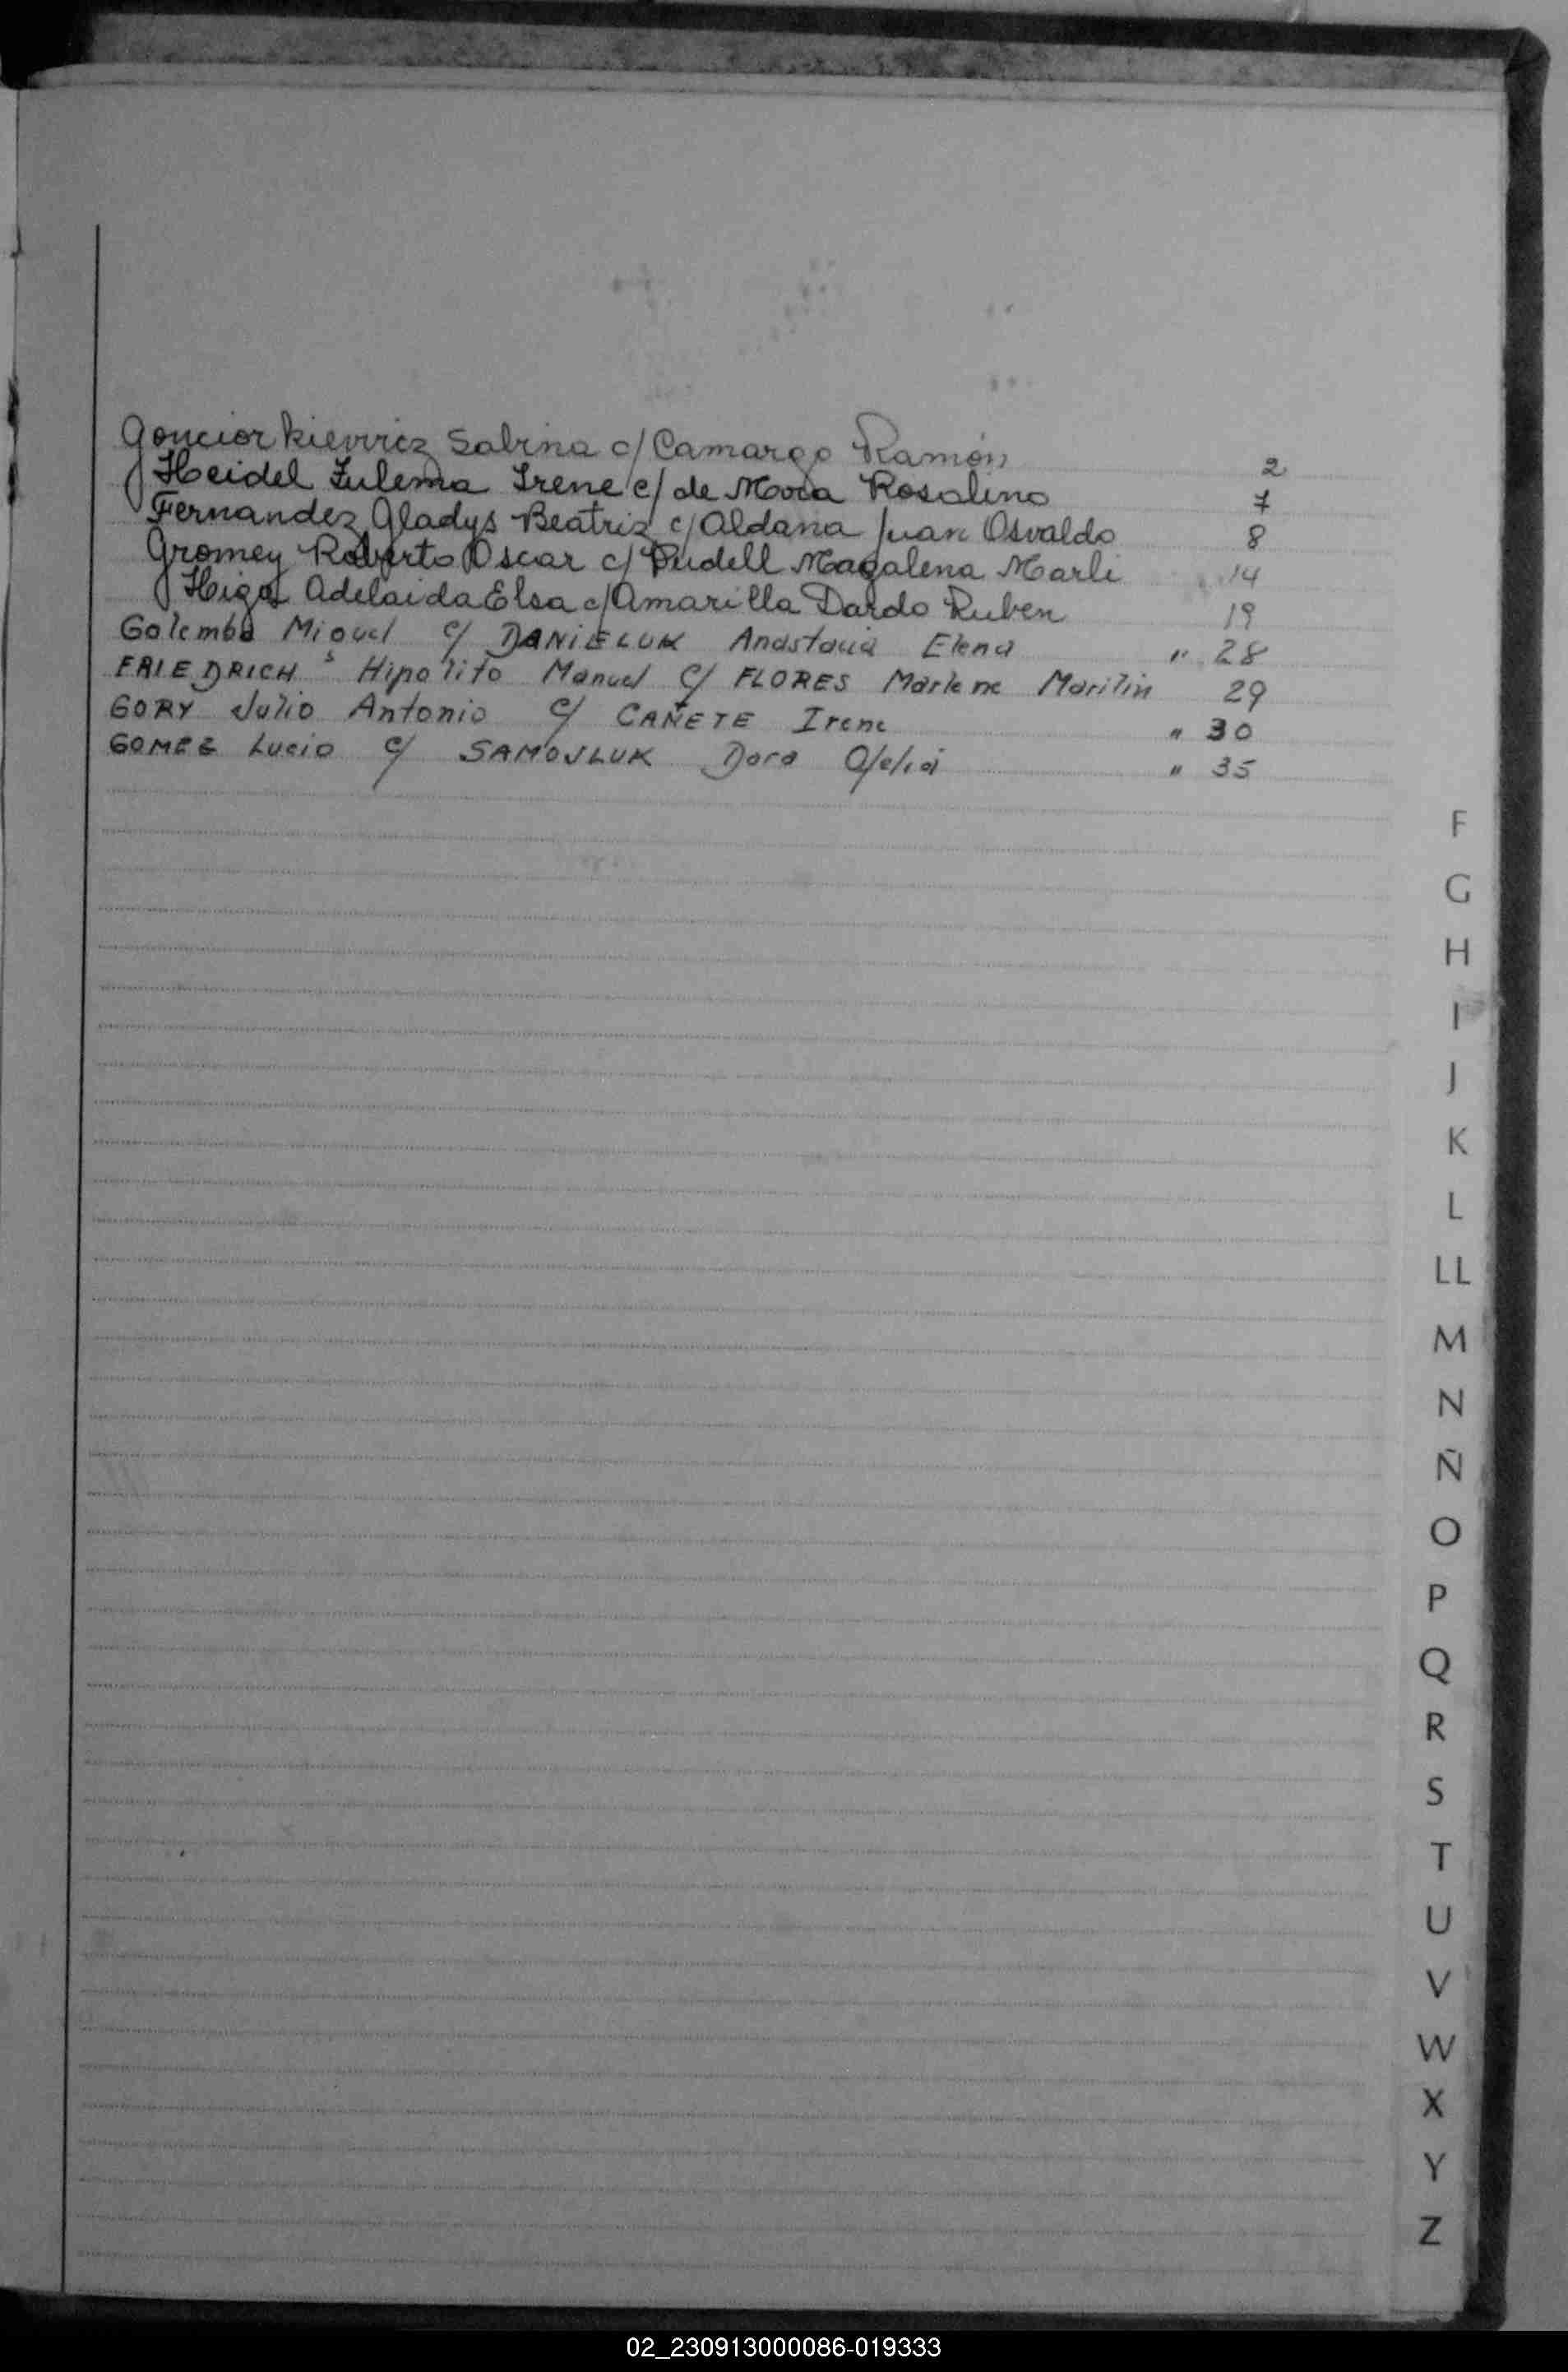 Gonciorkievicz Sabina c/ Camargo Ramón 2
Heidel Zulema Irene c/ de Mora Rosalino 7
Fernandez Gladys Beatriz c/ Aldana Juan Osvaldo 8
Gromey Roberto Oscar c/ Pudell Magalena Marli 14
Higa Adelaida Elsa c/ Amarilla Dardo Ruben 19
Golemba Miguel c/ DANIELUK Anastacia Elena " 28
FRIEDRICH Hipolito Manuel c/ FLORES Marlene Marilin 29
GORY Julio Antonio c/ CAÑETE Irene " 30
GOMEZ Lucio c/ SAMOJLUK Dora Ofelia " 35
F
G
H
I
J
K
L
LL
M
N
Ñ
O
P
Q
R
S
T
U
V
W
X
Y
Z
02_230913000086-019333